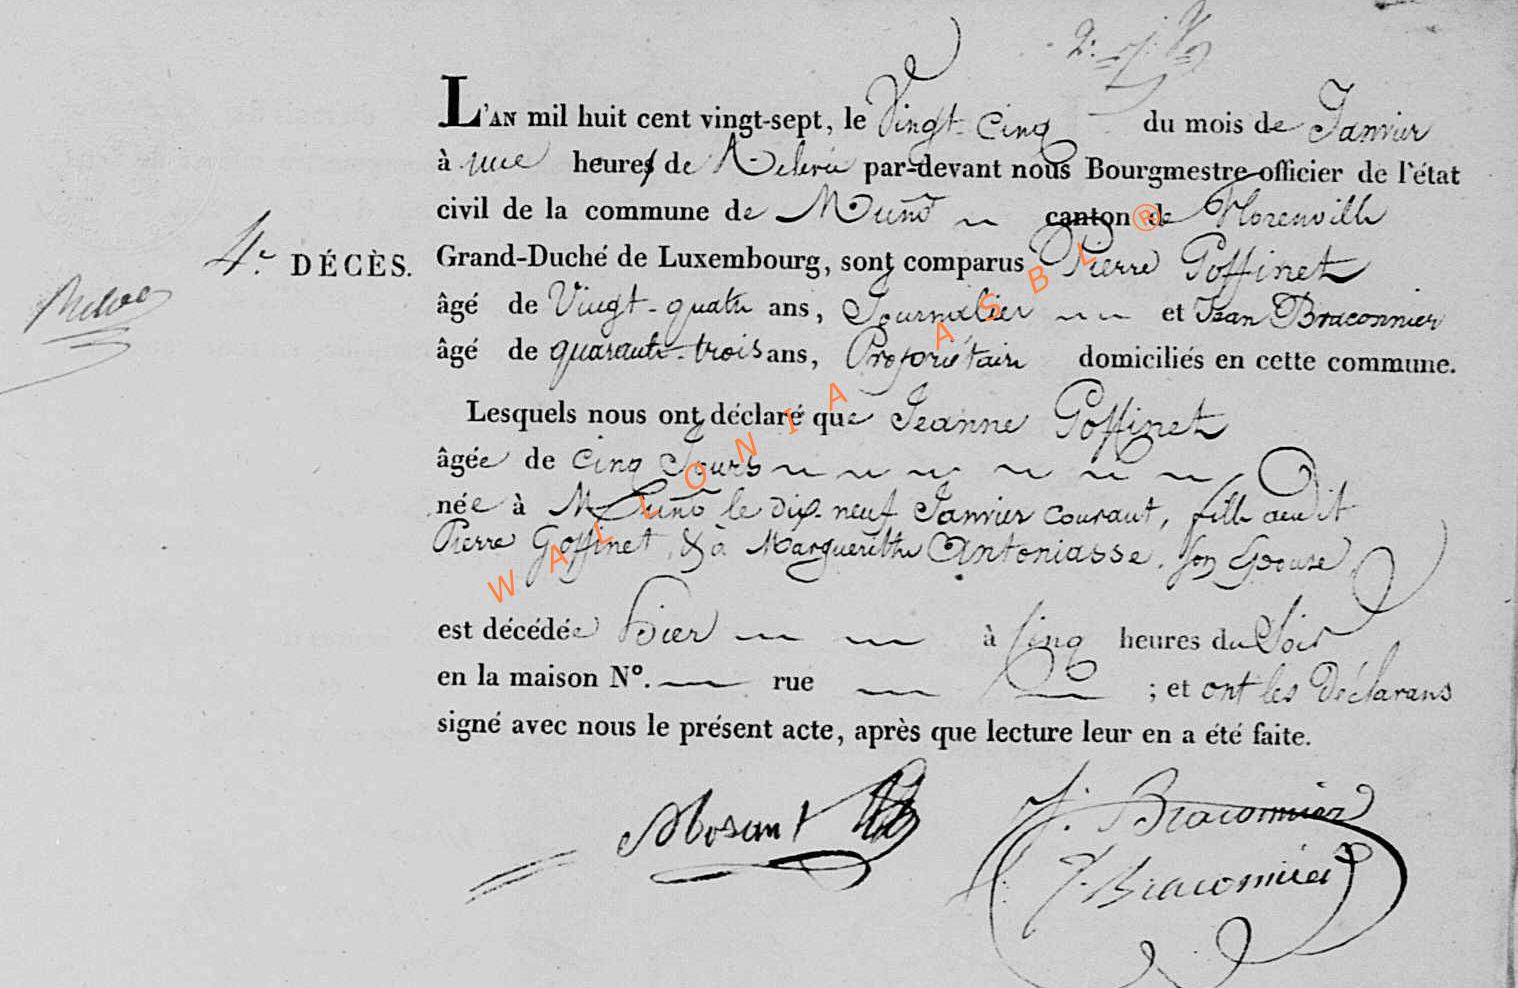 L'AN mil huit cent vingt-sept, le Vingt-Cinq du mois de Janvier
à une heure de Relevée par-devant nous Bourgmestre officier de l'état
civil de la commune de Muno canton de Florenville
4.e DÉCÈS. Grand-Duché de Luxembourg, sont comparus Pierre Goffinet
âgé de Vingt-quatre ans, Journalier et Jean Braconnier
âgé de quarante-trois ans, Propriétaire domiciliés en cette commune.
Lesquels nous ont déclaré que Jeanne Goffinet
âgée de Cinq Jours
née à Muno le dix-neuf Janvier courant, fille audit
Pierre Goffinet, & à Marguerithe Antoniasse, son Epouse
est décédée hier à Cinq heures du Soir
en la maison N°. rue ; et ont les Déclarans
signé avec nous le présent acte, après que lecture leur en a été faite.
J. Braconnier
J. Braconnier
WALLONIA ASBL®